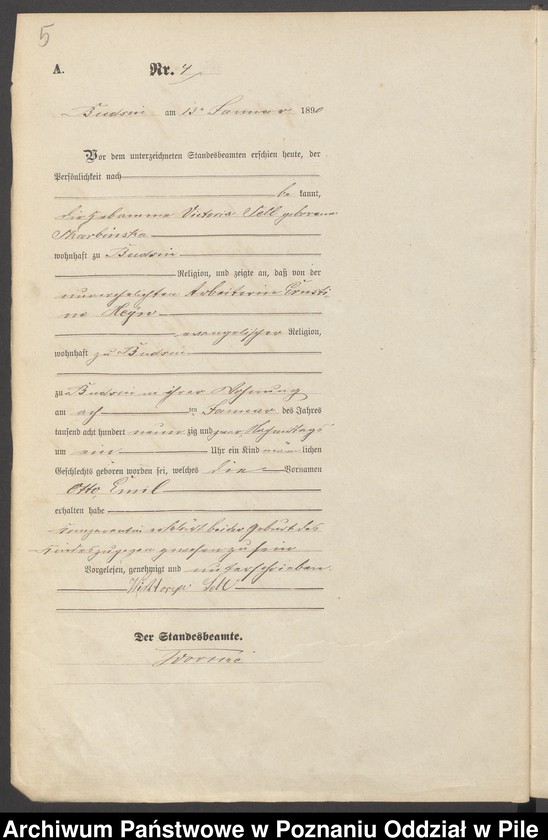 5
A. Nr. 4
Budsin am 13n Januar 1890
Vor dem unterzeichneten Standesbeamten erschien heute, der
Persönlichkeit nach
be kannt,
die Hebamme Victoria Sell geborene
Skarbinska
wohnhaft zu Budsin
Religion, und zeigte an, daß von der
unverehelichten Arbeiterin Ernsti
ne Heyn
evangelischer Religion,
wohnhaft zu Budsin
zu Budsin in ihrer Wohnung
am ten Januar des Jahres
tausend acht hundert neun zig und zwar Nachmittags
um ein Uhr ein Kind männ lichen
Geschlechts geboren worden sei, welches die Vornamen
Otto, Emil
erhalten habe
Komparentin erklärt bei der Geburt des
Kindes zugegen gewesen zu sein
Vorgelesen, genehmigt und unterschrieben.
Sell
Der Standesbeamte.
Archiwum Państwowe w Poznaniu Oddział w Pile